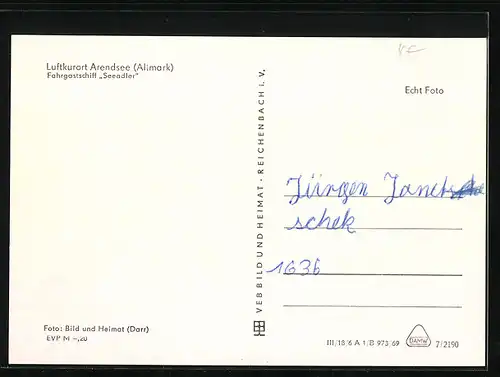 Luftkurort Arendsee (Altmark)
Fahrgastschiff „Seeadler"
Echt Foto
VEB BILD UND HEIMAT · REICHENBACH i. V.
Jürgen
schek
1636
Foto: Bild und Heimat (Darr)
EVP M –,20
III/18/6 A 1/B 973/69
DAMW
7/2190